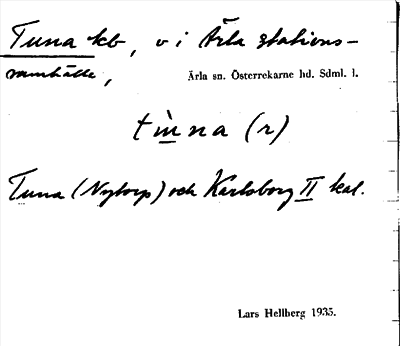 Tuna kb, v i Ärla stations-
samhälle,
Ärla sn. Österrekarne hd. Sdml. l.
tɯ̀na (r)
Tuna (Nytorp) och Karlsborg II kal.
Lars Hellberg 1935.